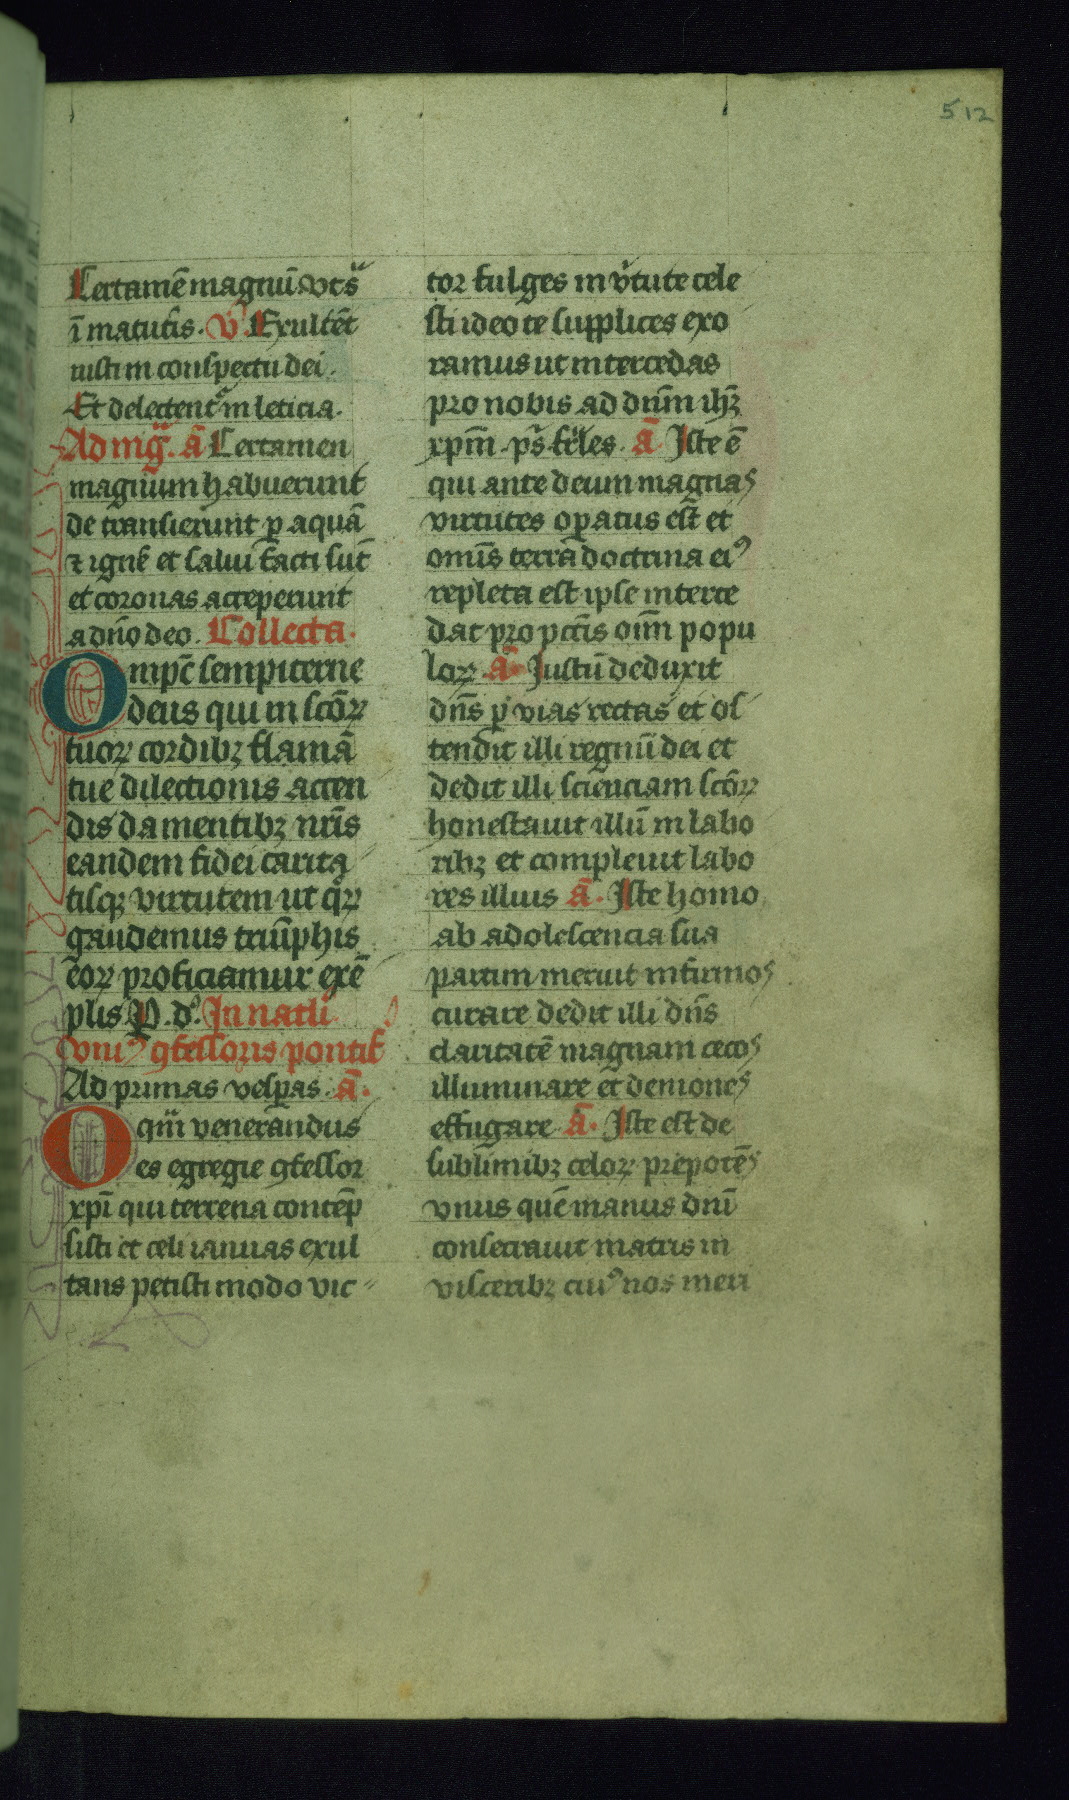 512
Certamē magnū vt sͣ
ī matutīs. V̊ Exultēt
iusti in conspectu dei.
Et delectentͬ in leticia.
Ad mḡ. ā Certamen
magnum habuerunt
de transierunt ꝑ aquā
⁊ ignē et salui facti sūt
et coronas acceperunt
a dn̄o deo. Collecta.
Omp̄c sempiterne
deus qui in scōꝝ
tuoꝝ cordibꝫ flamā
tue dilectionis accen
dis da mentibꝫ nr̄is
eandem fidei carita
tisqꝫ virtutem ut qͦꝝ
gaudemus triūphis
eoꝝ proficiamur exē
plis P. d̊. In natli
vniꝰ ꝯfessoris pontif̄
Ad primas vesꝑas. ā.
O qͣm venerandus
es egregie ꝯfessor
xp̄i qui terrena contēp
sisti et celi ianuas exul
tans petisti modo vic
tor fulges in v̄tute cele
sti ideo te supplices exo
ramus ut intercedas
pro nobis ad dnm̄ ihꝫ
xpm̄. ps̄. fr̄les. ā Iste ē
qui ante deum magnas
virtutes oꝑatus est̄ et
omīs terrā doctrina eiꝰ
repleta est ipse interce
dat pro pctīs oīm popu
loꝝ. ā Iustū deduxit
dn̄s ꝑ vias rectas et os
tendit illi regnū dei et
dedit illi scienciam scōꝝ
honestauit illū in labo
ribꝫ et compleuit labo
res illius ā. Iste homo
ab adolescencia sua
partim meruit infirmos
curare dedit illi dn̄s
claritatē magnam cecos
illuminare et demones
effugare ā. Iste est de
sublimibꝫ celoꝝ prepotēs
vnus quē manus dnī
consecrauit matris in
visceribꝫ cuiꝰ nos meri